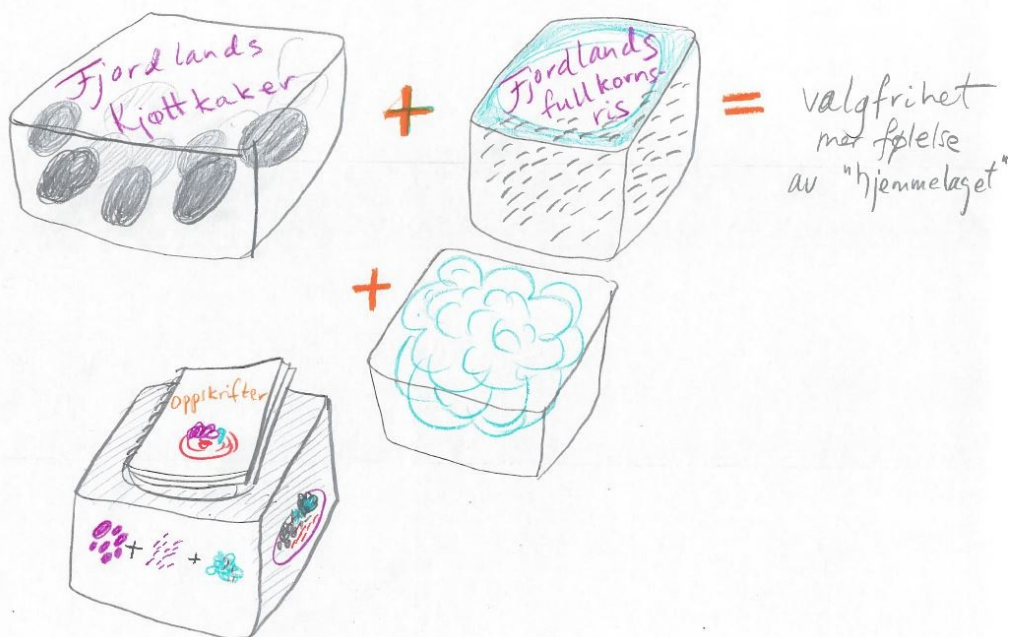 Fjordlands
Kjøttkaker
+
Fjordlands
fullkorns-
ris
=
valgfrihet
mer følelse
av "hjemmelaget"
+
oppskrifter
+ +